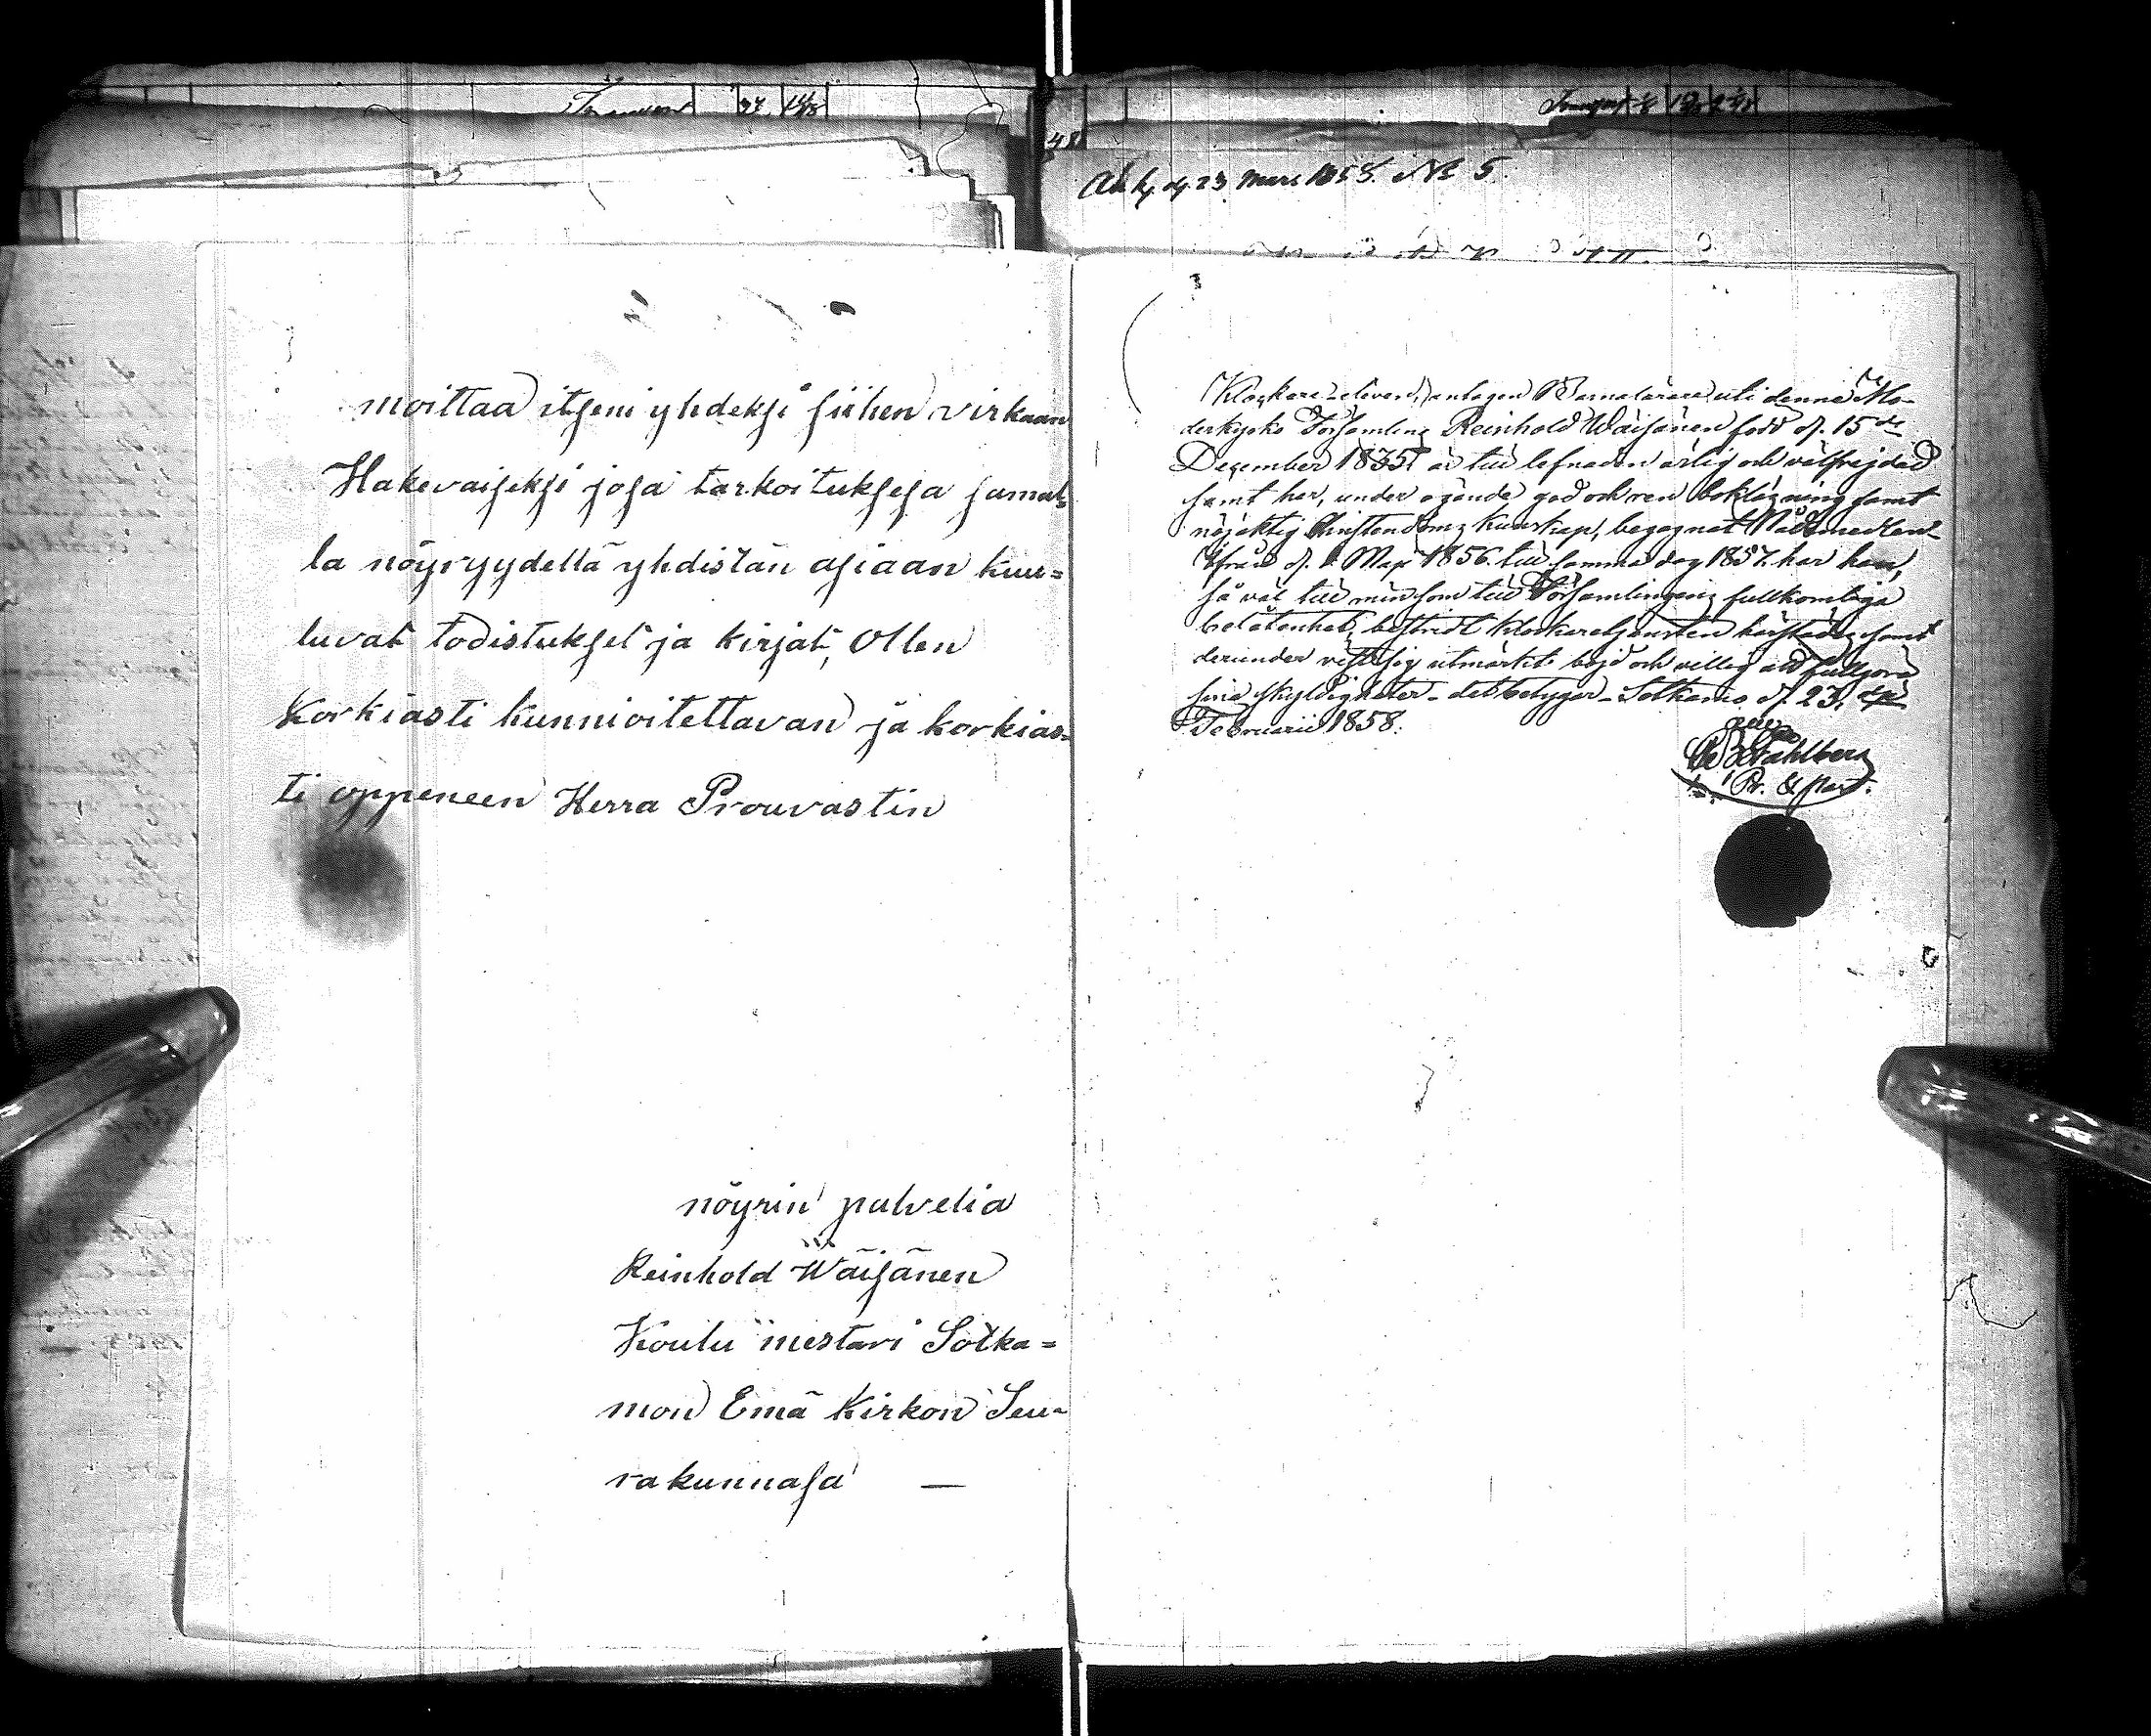 Transport 97
48
Ank. d. 23 Mars 1858. No 5.
moittaa itseni yhdeksi siihen virkaan
Hakevaiseksi josa tarkoituksesa samal-
la nöyryydellä yhdistän asiaan kuu=
luvat todistukset ja kirjat, Ollen
Korkiasti kunnioitettavan ja korkias-
ti oppeneen Herra Prouvastin
nöyrin palvelia
Reinhold Wäisänen
Koulu mestari Sotka=
mon Emä Kirkon Seu-
rakunnasa —
Klockare-eleven, antagen Barnalärare uti denna Mo-
derkyrko Församling Reinhold Wäisänen född d. 15de
December 1835, är till lefnaden ärlig och välfrejdad
samt har, under ägande god och ren bokläsning samt
nöjaktig Christendoms kunskap, begagnat Nådemedlen.
Ifrån d. 1 Maji 1856 till samma dag 1857 har han,
så väl till min som till Församlingens fullkomliga
belåtenhet, bestridt klockaretjensten härstädes samt
derunder visat sig utmärkt böjd och villig att fullgöra
sina skyldigheter - det betygar - Sotkamo d. 23
Februarii 1858.
Stahlberg
Pr. & Past.